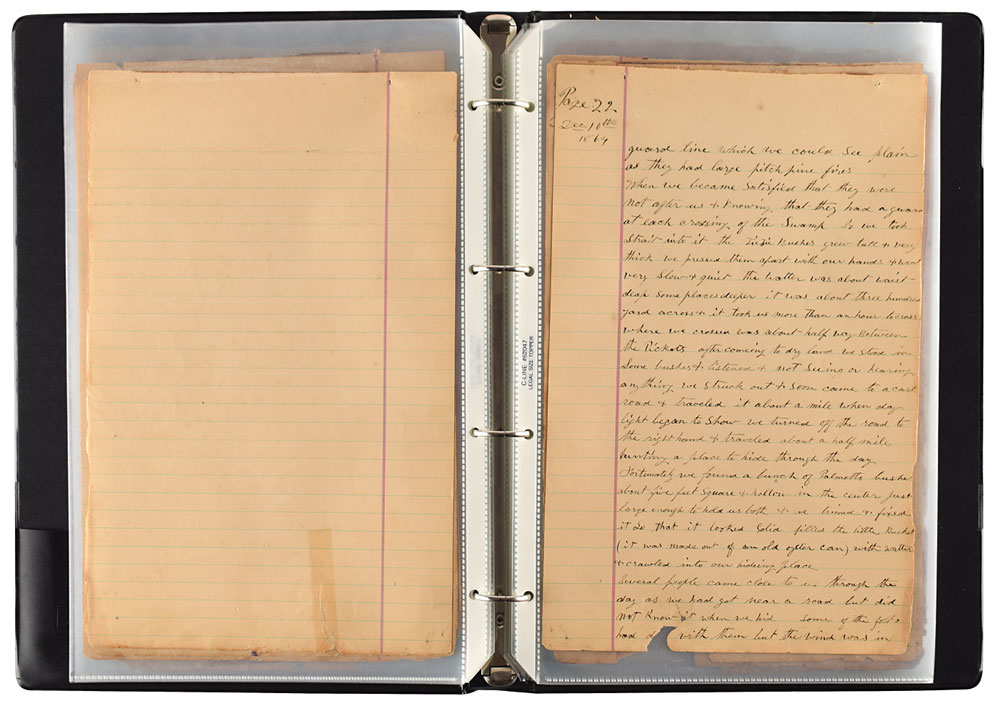 C-LINE #62047
LEGAL SIZE TOPPER
Page 22
Dec 10th
1864
guard line which we could see plain
as they had large pitch pine fires
When we became satisfied that they were
not after us & knowing that they had a guard
at each crossing of the Swamp So we took
Strait into it the bushes grew tall & very
thick we pressed them apart with our hands & went
very slow & quiet the watter was about waist
deap some places deeper it was about three hundred
yard across & it took us more than an hour to cross
where we crossed was about half way between
the Pickets after comeing to dry land we stood in
Some bushes & listened & not seeing or hearing
anything we struck out & soon came to a cart
road & traveled it about a mile when day
light began to show we turned off the road to
the right hand & traveled about a half mile
hunting a place to hide through the day
Fortunately we found a bunch of Palmetto bushes
about five feet square & hollow in the center just
large enough to hold us both & we trimed & fixed
it so that it looked Solid filled the little bucket
(it was made out of an old oyster can) with watter
& crawled into our hideing place
Several people came close to us through the
day as we had got near a road but did
not know it when we hid some of the
had with them but the wind was in